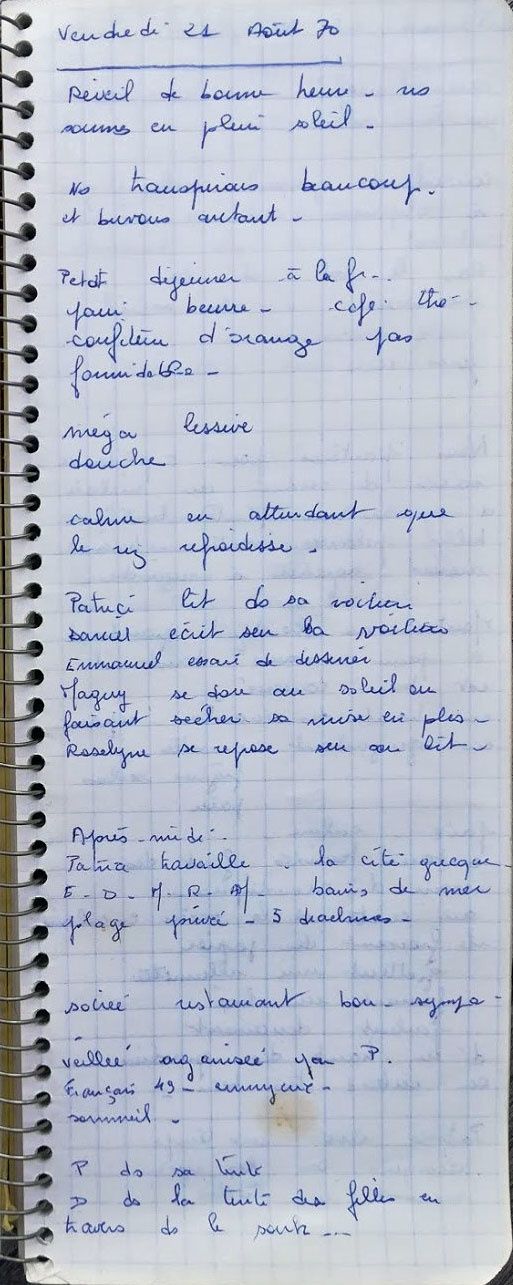 Vendredi 21 Août 70
Réveil de bonne heure - ns
sommes en plein soleil -
Ns transpirons beaucoup.
et buvons autant -
Petit déjeuner à la fr..
pain beurre - café thé -
confiture d'orange pas
formidable -
méga lessive
douche
calme en attendant que
le riz refroidisse.
Patrice lit ds sa voiture
Daniel écrit sur la voiture
Emmanuel essaie de dessiner
Maguy se dore au soleil en
faisant sécher sa mise en plis -
Roselyne se repose sur son lit -
Après-midi :
Patrice travaille - la cité grecque -
E - D - M - R - bains de mer
plage privée - 5 drachmes -
soirée restaurant bon - sympa -
veillée organisée par P.
Français 49 - ennuyeux -
sommeil -
P ds sa tente
D ds la tente des filles en
travers ds le sens ...